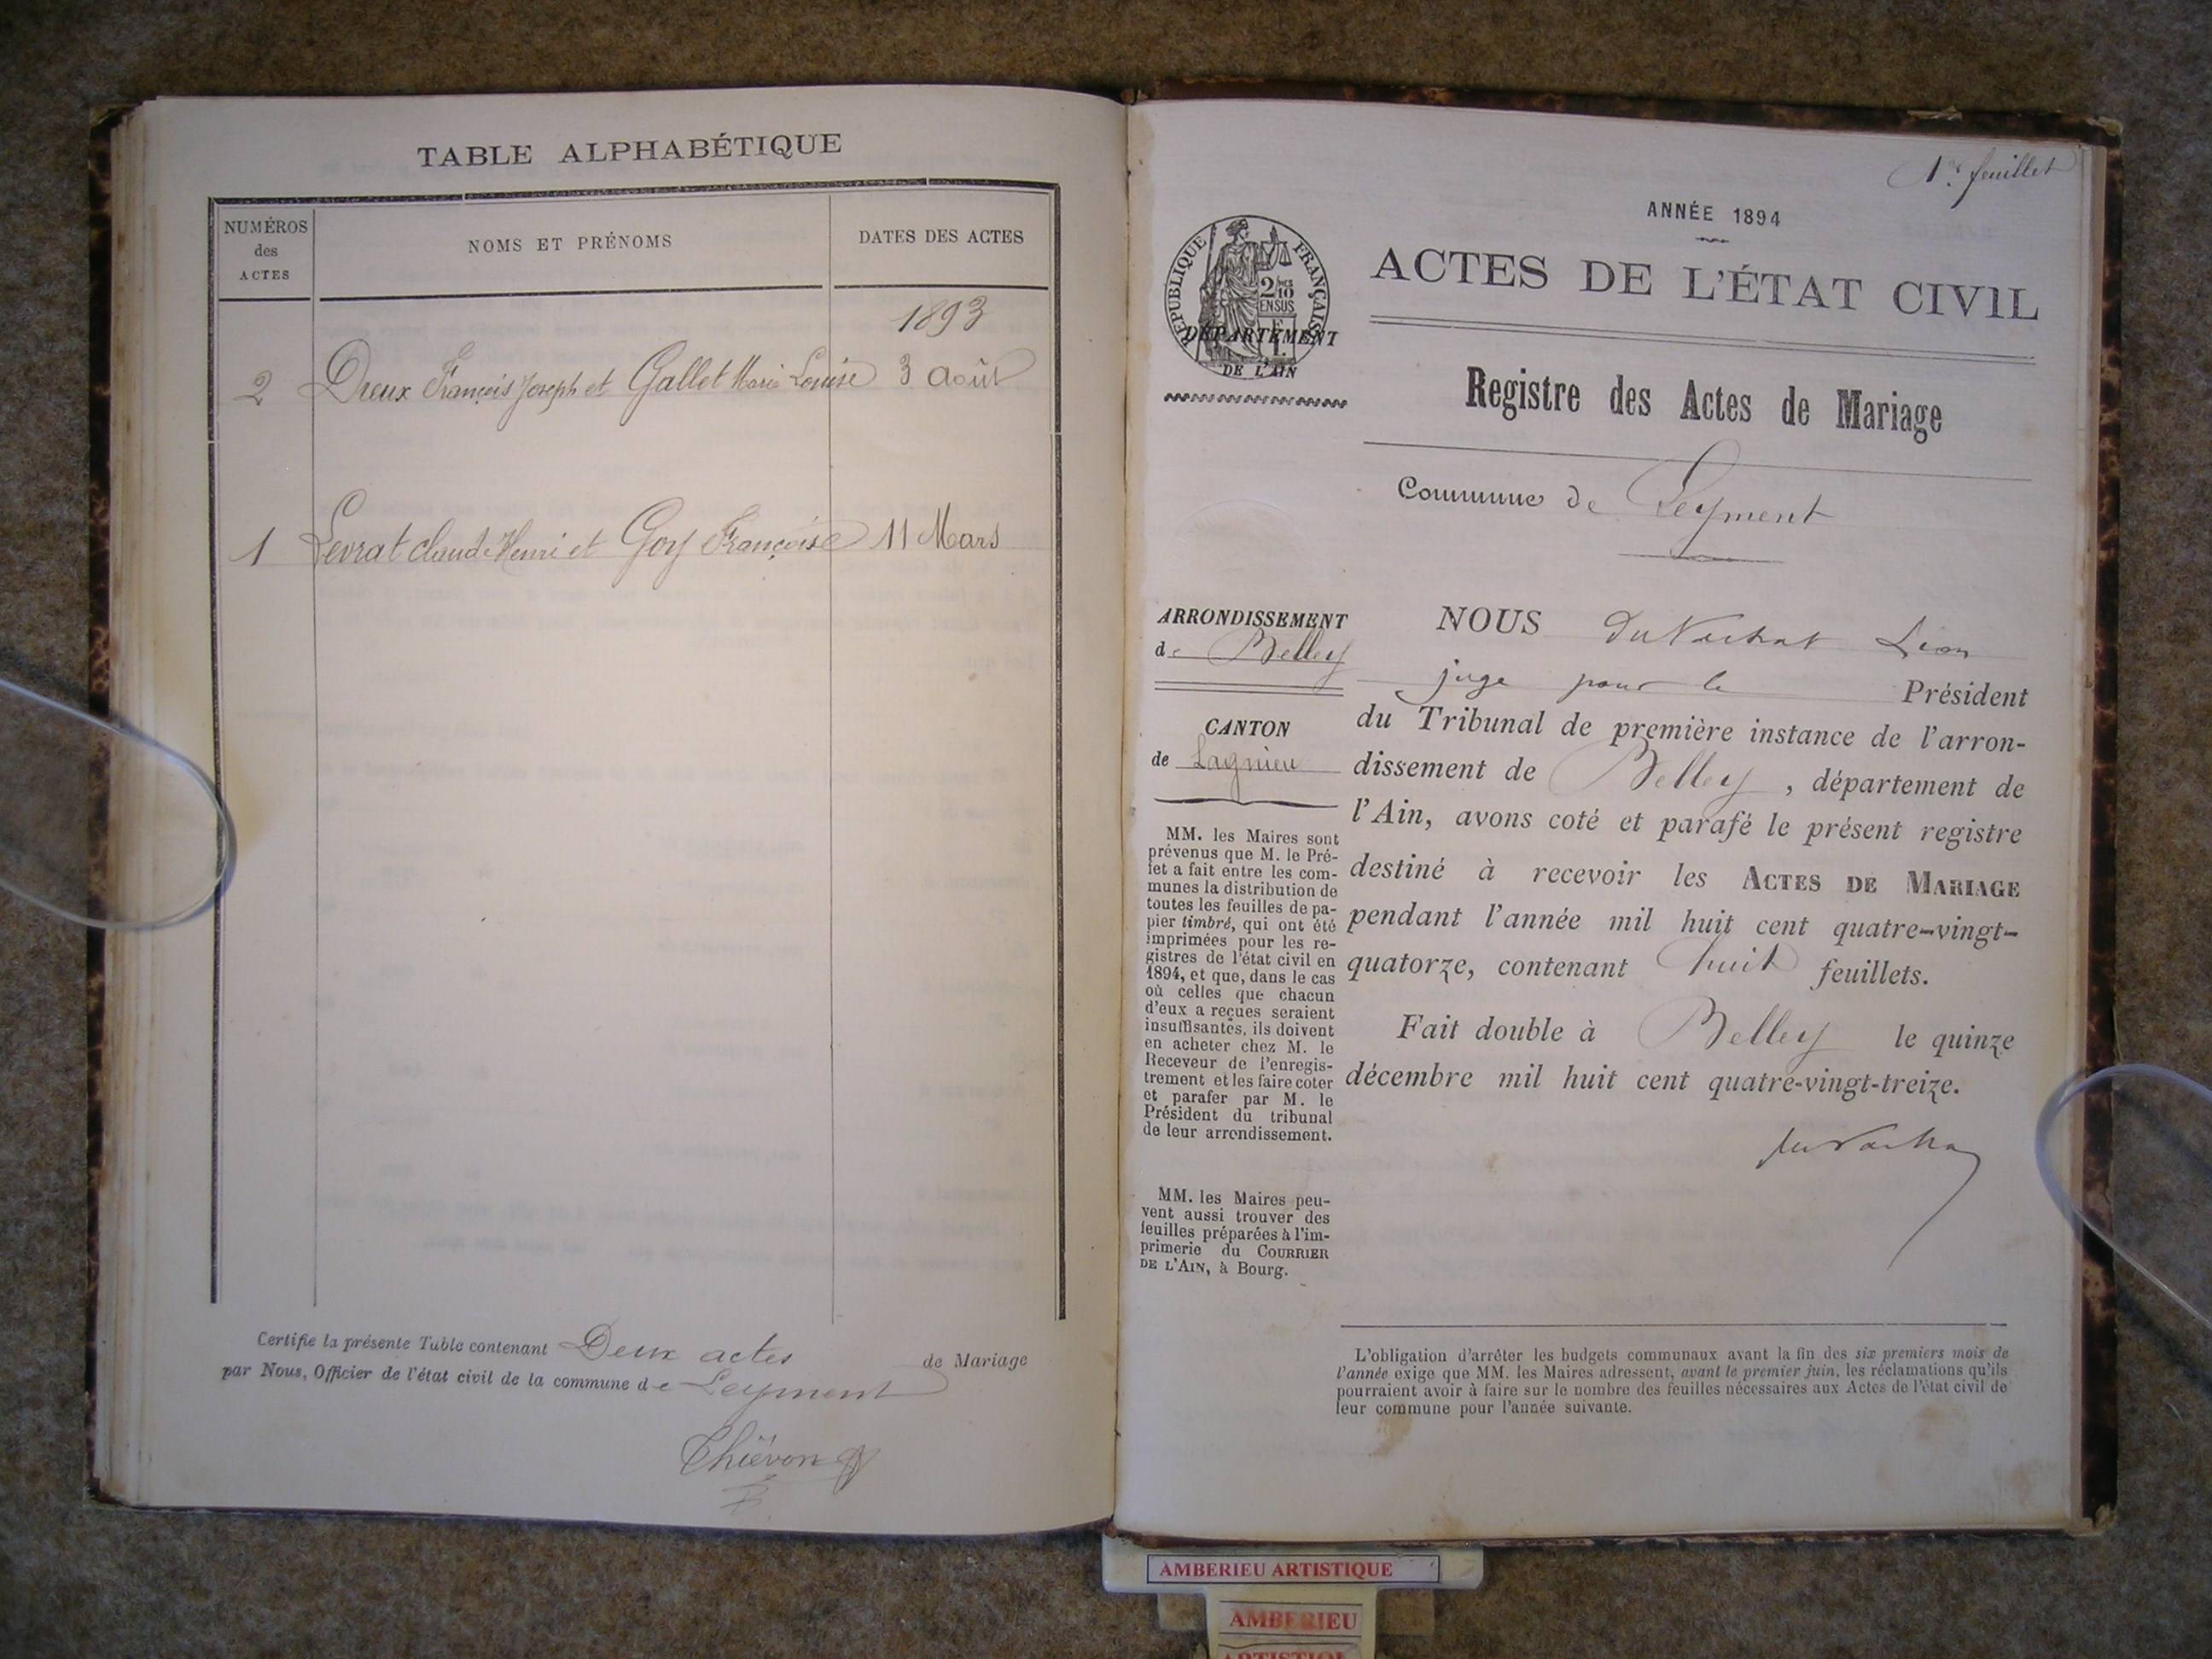 TABLE ALPHABÉTIQUE
NUMÉROS
des
ACTES
NOMS ET PRÉNOMS
DATES DES ACTES
1893
2 Dreux François Joseph et Gallet Marie Louise 3 Août
1 Levrat Claude Henri et Goy Françoise 11 Mars
Certifie la présente Table contenant Deux actes de Mariage
par Nous, Officier de l'état civil de la commune de Leyment
1er feuillet
ANNÉE 1894
ACTES DE L'ÉTAT CIVIL
RÉPUBLIQUE FRANÇAISE
2/10
EN SUS
DÉPARTEMENT
DE L'AIN
Registre des Actes de Mariage
Commune de Leyment
ARRONDISSEMENT
de Belley
CANTON
de Lagnieu
MM. les Maires sont
prévenus que M. le Pré-
fet a fait entre les com-
munes la distribution de
toutes les feuilles de pa-
pier timbré, qui ont été
imprimées pour les re-
gistres de l'état civil en
1894, et que, dans le cas
où celles que chacun
d'eux a reçues seraient
insuffisantes, ils doivent
en acheter chez M. le
Receveur de l'enregis-
trement et les faire coter
et parafer par M. le
Président du tribunal
de leur arrondissement.
MM. les Maires peu-
vent aussi trouver des
feuilles préparées à l'im-
primerie du COURRIER
DE L'AIN, à Bourg.
NOUS du Vachat Léon
juge pour le Président
du Tribunal de première instance de l'arron-
dissement de Belley, département de
l'Ain, avons coté et parafé le présent registre
destiné à recevoir les ACTES DE MARIAGE
pendant l'année mil huit cent quatre-vingt-
quatorze, contenant huit feuillets.
Fait double à Belley le quinze
décembre mil huit cent quatre-vingt-treize.
du Vachat
L'obligation d'arrêter les budgets communaux avant la fin des six premiers mois de
l'année exige que MM. les Maires adressent, avant le premier juin, les réclamations qu'ils
pourraient avoir à faire sur le nombre des feuilles nécessaires aux Actes de l'état civil de
leur commune pour l'année suivante.
AMBERIEU ARTISTIQUE
AMBERIEU
ARTISTIQU